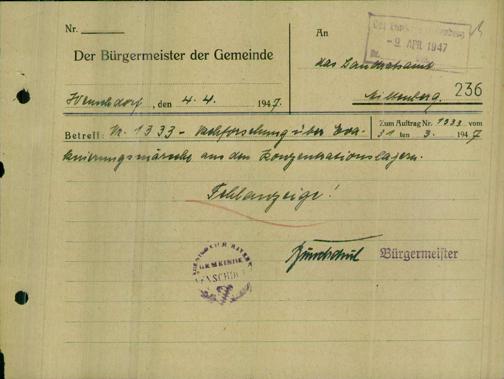 Nr.
An
- 9. APR. 1947
Der Bürgermeister der Gemeinde
das Landratsamt
Wenschdorf, den 4.4. 1947.
Miltenberg.
236
Betreff: Nr. 1333 - Nachforschung über Eva-
Zum Auftrag Nr. 1333 vom
31 ten 3. 1947
kuierungsmärsche aus den Konzentrationslagern.
Fehlanzeige!
GEMEINDE
Bürgermeister